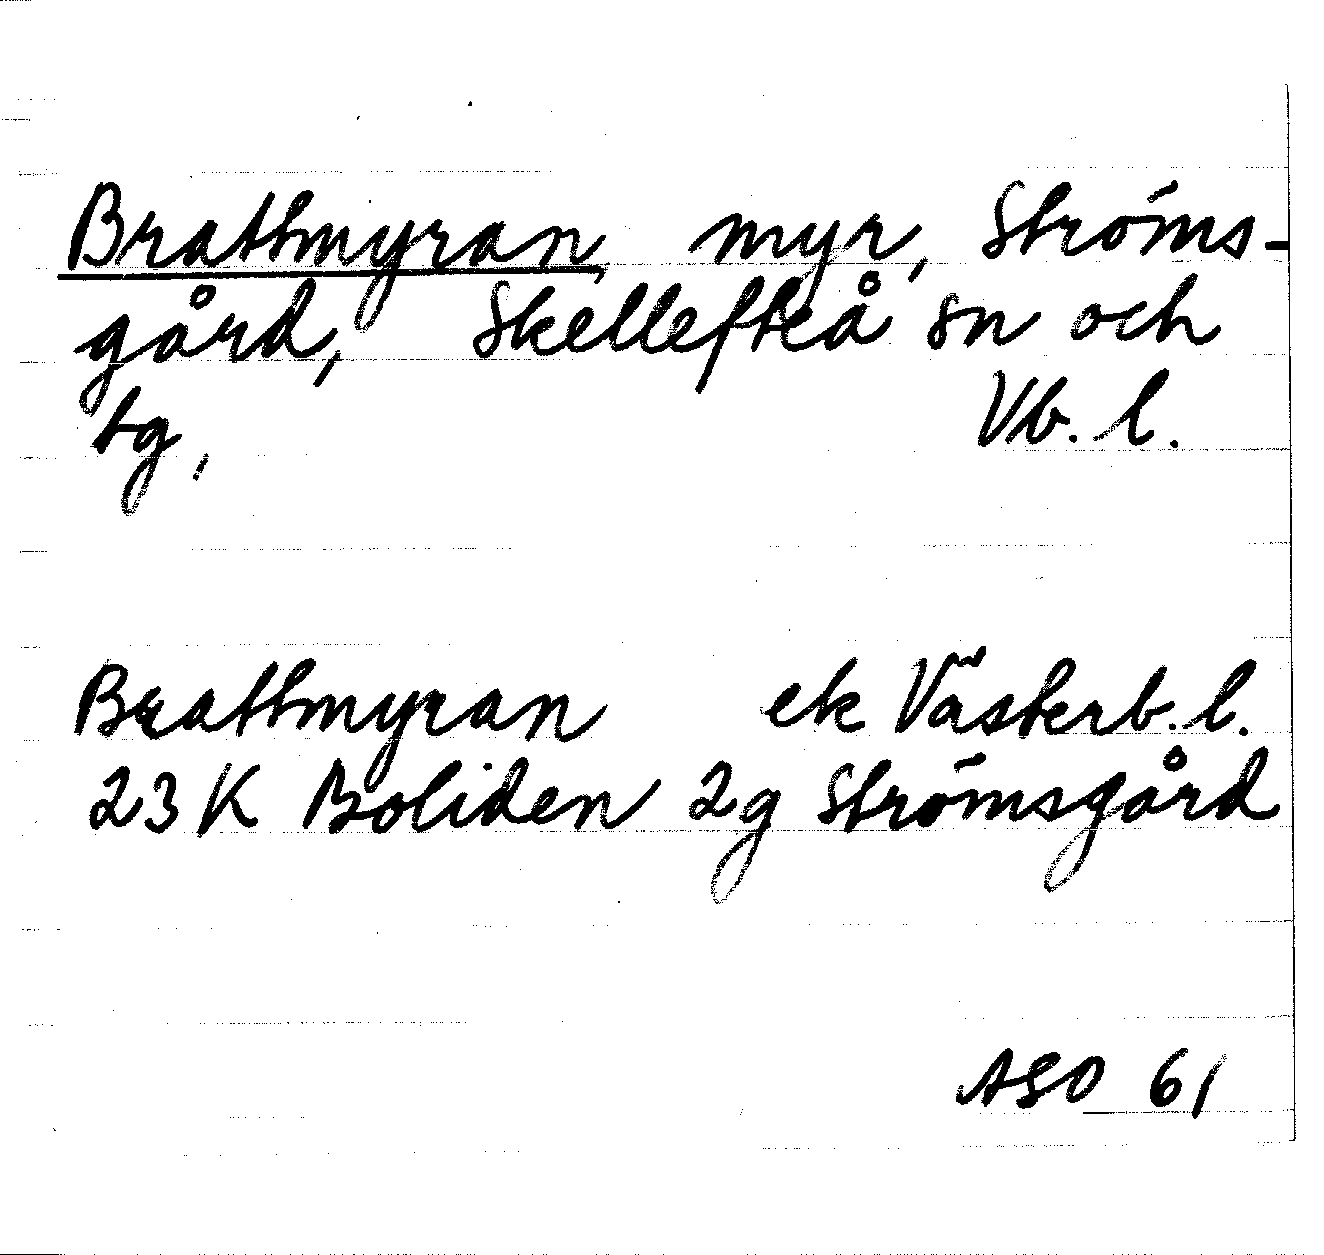 Brattmyran, myr, Ströms-
gård, Skellefteå sn och
tg, Vb. l.
Brattmyran ek Västerb. l.
23K Boliden 2g Strömsgård
ASO 61